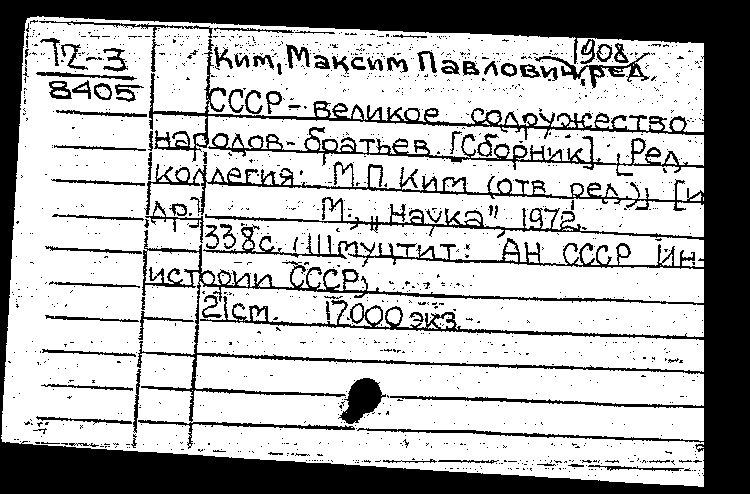 Т2-3
8405
1908
Ким, Максим Павлович, ред.
СССР - великое содружество
народов-братьев. [Сборник]. Ред.
коллегия: М.П. Ким (отв. ред.) [и
др.] М., „Наука", 1972.
338с. (Шмуцтит: АН СССР Ин-
истории СССР).
21см. 17000 экз.